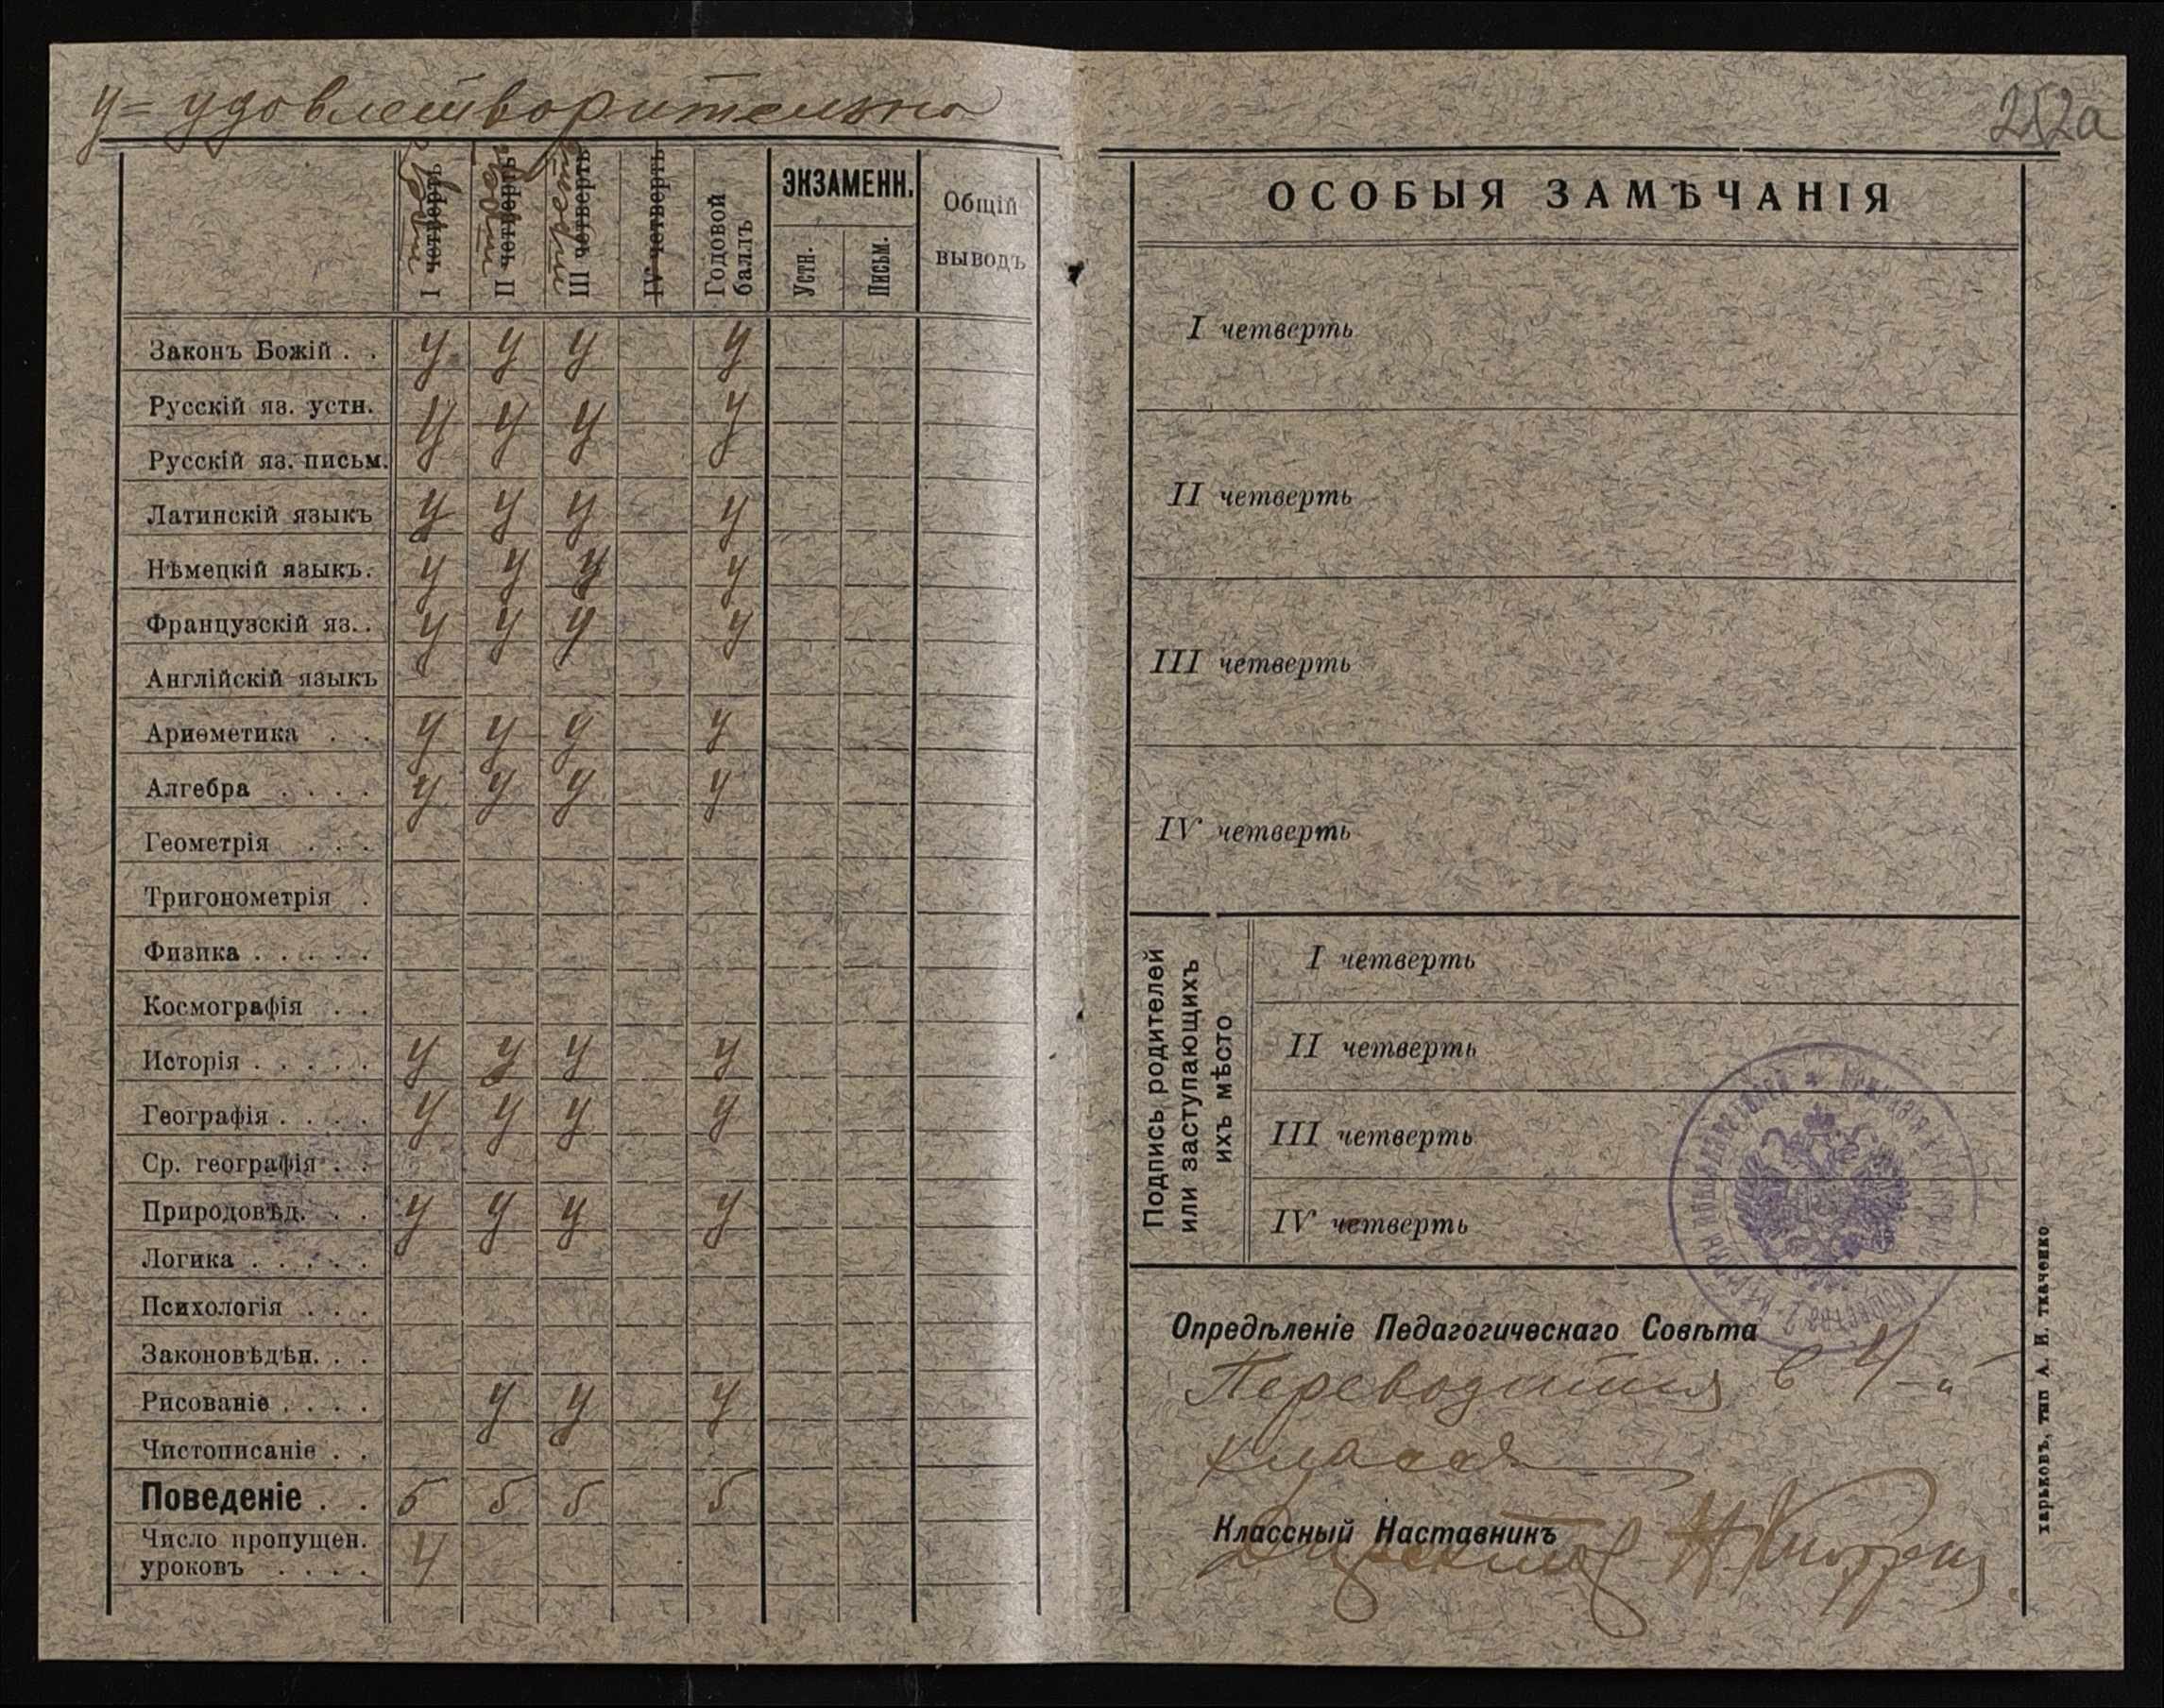 у = удовлетворительно
252а
I четверть
II четверть
III четверть
IV четверть
Годовой баллъ
ЭКЗАМЕНН.
Устн.
Письм.
Общій
выводъ
Законъ Божій . . у у у у
Русскій яз. устн. у у у у
Русскій яз. письм.
Латинскій языкъ у у у у
Нѣмецкій языкъ. у у у у
Французскій яз. . у у у у
Англійскій языкъ
Ариѳметика . . у у у у
Алгебра . . . . у у у у
Геометрія . . .
Тригонометрія .
Физика . . . . .
Космографія . .
Исторія . . . . . у у у у
Географія . . . . у у у у
Ср. географія . .
Природовѣд. . . у у у у
Логика . . . . .
Психологія . . .
Законовѣдѣн. . .
Рисованіе . . . . у у у
Чистописаніе . .
Поведеніе . . 5 5 5 5
Число пропущен.
уроковъ . . . . 4
ОСОБЫЯ ЗАМѢЧАНІЯ
I четверть
II четверть
III четверть
IV четверть
Подпись родителей
или заступающихъ
ихъ мѣсто
I четверть
II четверть
III четверть
IV четверть
Опредѣленіе Педагогическаго Совѣта
Переводится в 4-й
класс
Классный Наставникъ
Директор
харьковъ, тип А. И. ткаченко